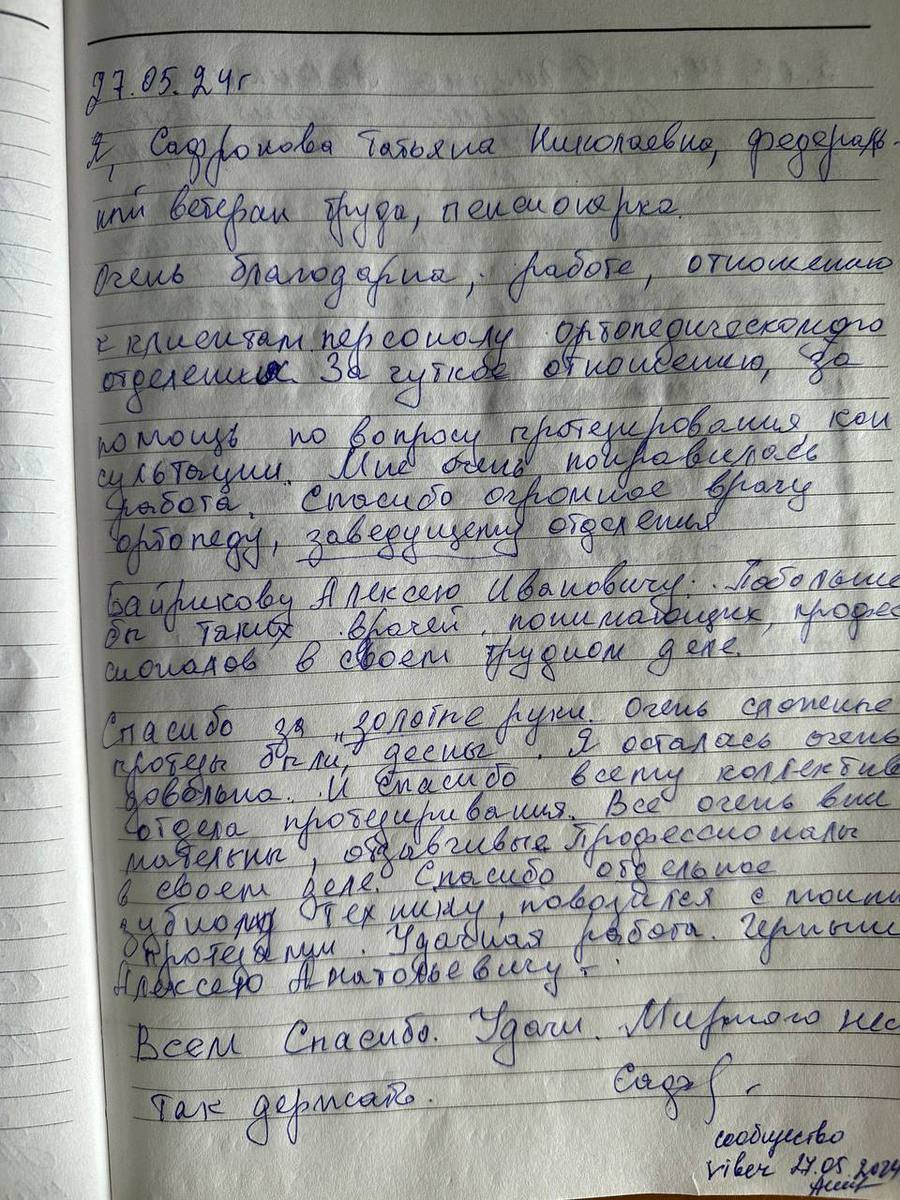 27.05.24г
Я, Сафронова Татьяна Николаевна, федераль-
ный ветеран труда, пенсионерка.
Очень благодарна, работе, отношению
к клиентам персоналу ортопедического
отделения. За чуткое отношению, за
помощь по вопросу протезирования кон
сультации. Мне очень понравилась
работа. Спасибо огромное врачу
ортопеду, заведущему отделения
Байрикову Алексею Ивановичу. Побольше
бы таких врачей, понимающих, профес
сионалов в своем трудном деле.
Спасибо за „золотые руки. Очень сложные
протезы были, десны. Я осталась очень
довольна. И спасибо всему коллективу
отдела протезиривания. Все очень вни
мательны, отзывчивые профессионалы
в своем деле. Спасибо отдельное
зубному технику, повозился с моими
протезами. Удачная работа.
Алексею Анатольевичу -
Всем Спасибо. Удачи. Мирного
Так держать.
сообщество
viber 27.05.2024